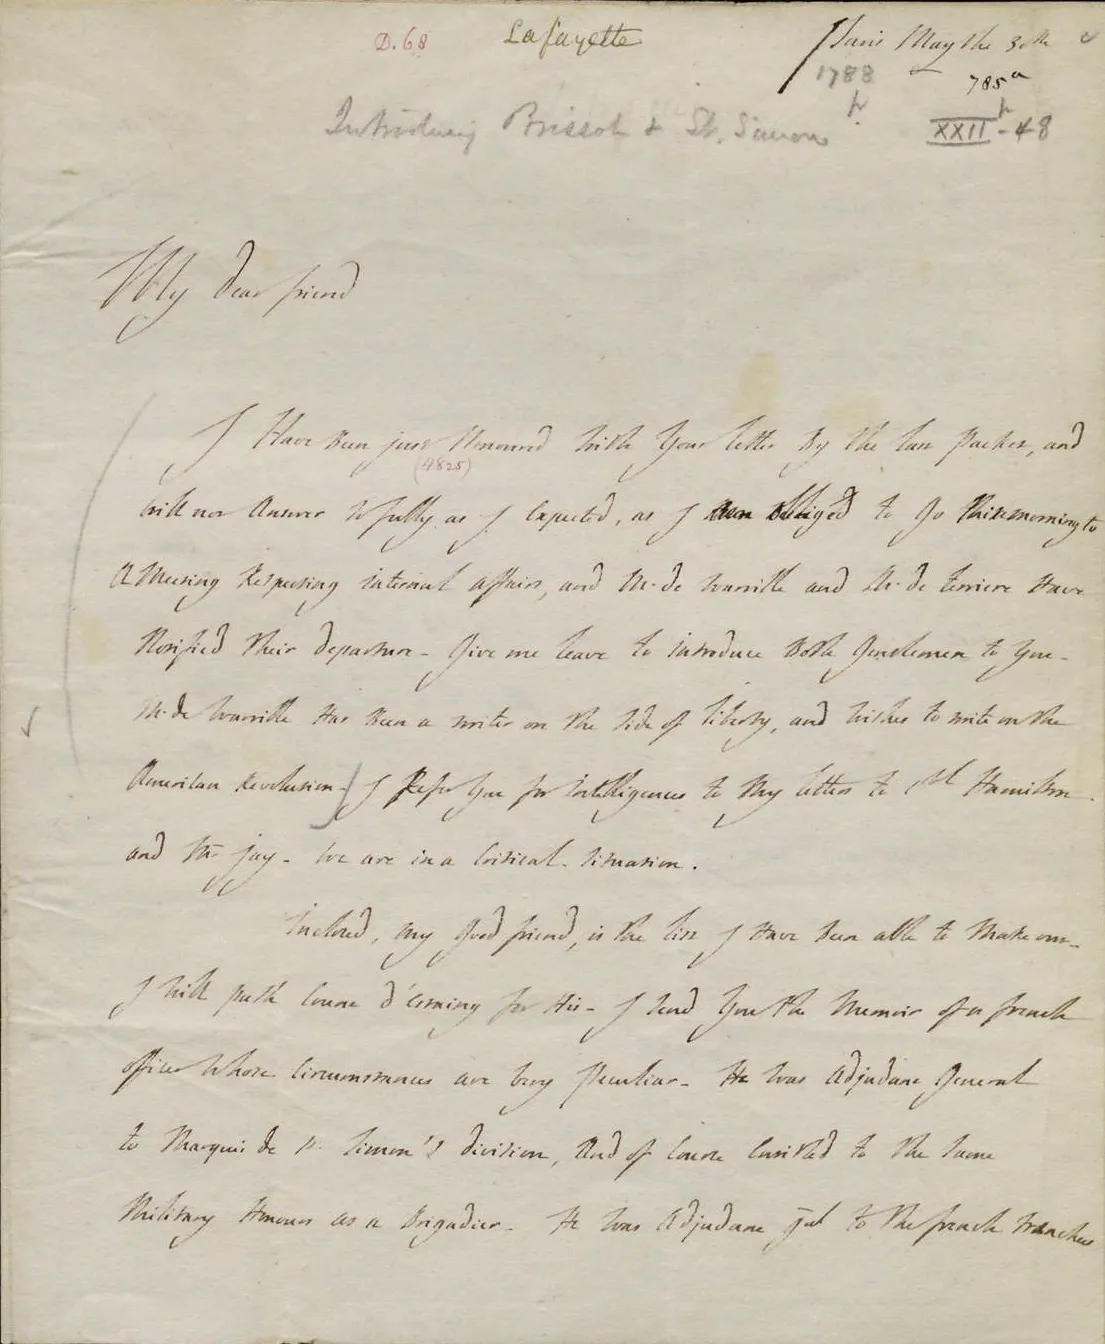 D.68 Lafayette Paris May the 30th
1788 785a
Introducing Brissot & St. Simon XXII-48
My dear friend
I Have Been just Honoured With Your letter By the last Packet, and
(4825)
will not Answer so fully as I Expected, as I am obliged to Go this morning to
A Meeting Respecting internal affairs, and M. de Warville and M. de terriere Have
Notified their departure - Give me leave to introduce Both Gentlemen to You -
M. de Warville Has Been a writer on the side of liberty, and wishes to write on the
American Revolution - I Refer You for intelligences to My letters to Cel Hamilton
and Mr Jay - We are in a Critical Situation.
Inclosed, my Good friend, is the list I Have Been able to Make out -
I will push Count d'Estaing for His - I send You the Memoir of a french
officer Whose Circumstances are very Peculiar - He was Adjudant General
to Marquis de St. Simon's division, And of Course Entitled to the same
Military Honours as a Brigadier - He was Adjudant Gal to the french trenches